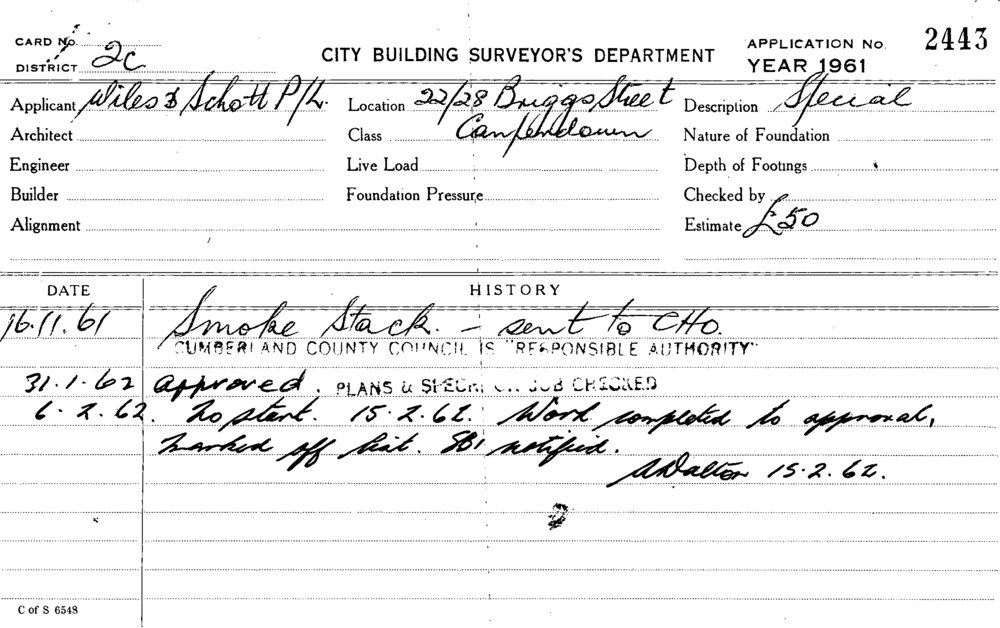 CARD No.
DISTRICT 2c
CITY BUILDING SURVEYOR'S DEPARTMENT
APPLICATION No. 2443
YEAR 1961
Applicant Wiles & Schott P/L. Location 22/28 Briggs Street Description Special
Architect Class Camperdown Nature of Foundation
Engineer Live Load Depth of Footings
Builder Foundation Pressure Checked by
Alignment Estimate £50
DATE HISTORY
16.11.61 Smoke Stack. - sent to CHO.
CUMBERLAND COUNTY COUNCIL IS "RESPONSIBLE AUTHORITY"
31.1.62 approved. PLANS & SPECN. ON JOB CHECKED
6.2.62. No start. 15.2.62. Work completed to approval,
marked off list. SBI notified.
Dalton 15.2.62.
C of S 6548